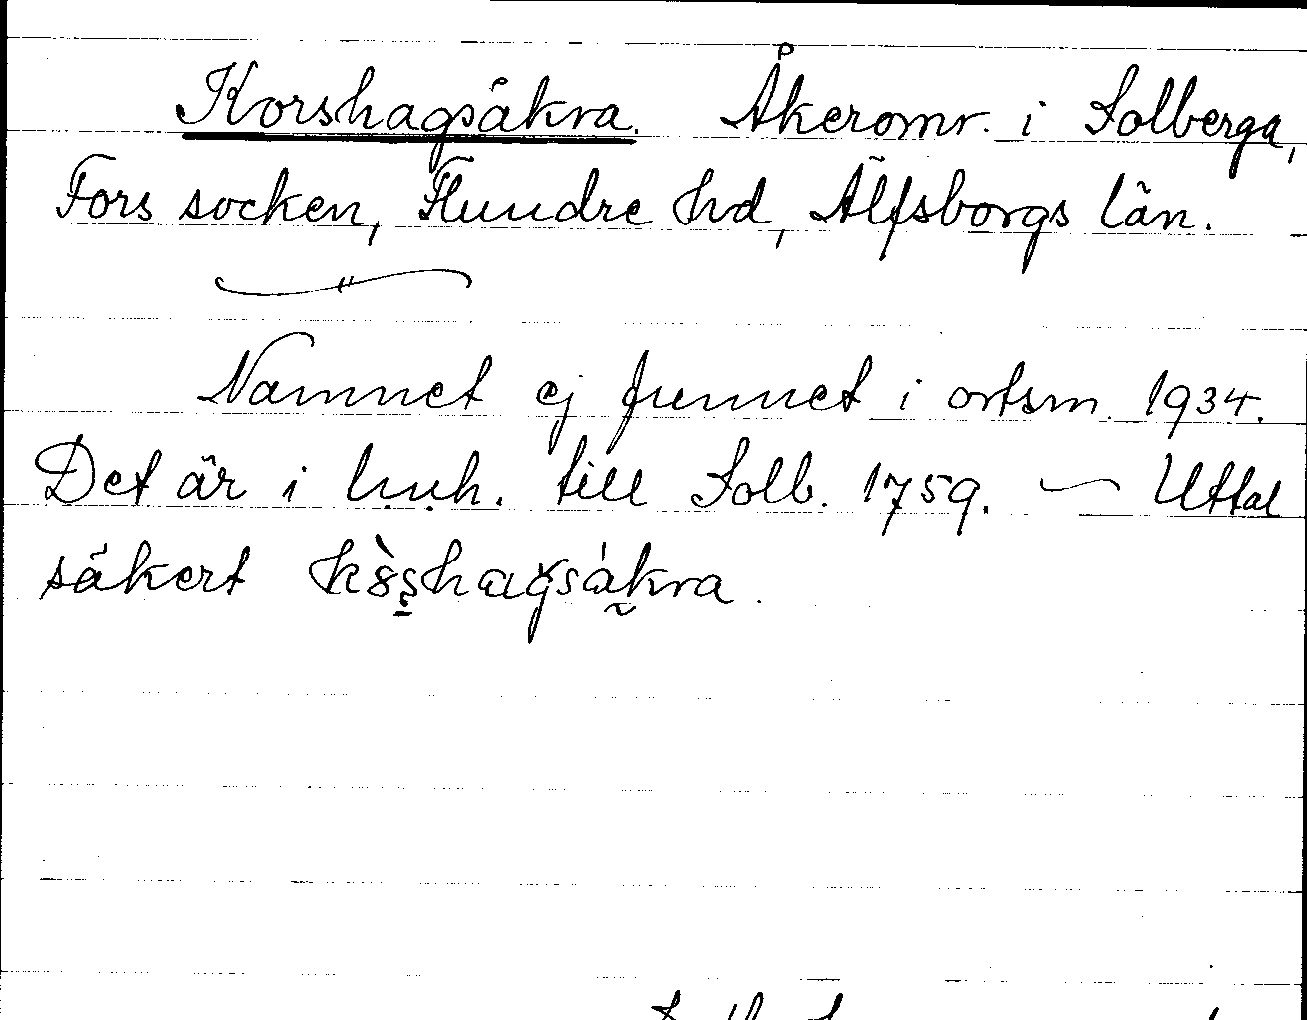 Korshagsåkra. Åkeromr. i Solberga,
Fors socken, Flundre hd, Älfsborgs län.
Namnet ej funnet i ortsm. 1934.
Det är i till Solb. 1759. — Uttal
säkert